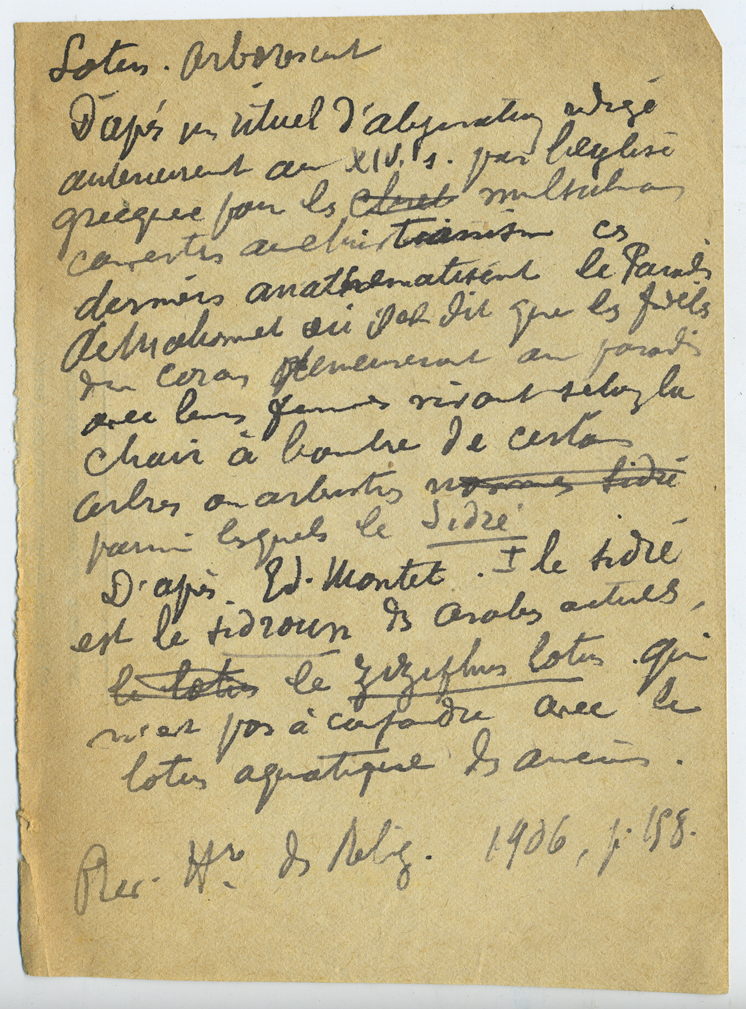 Lotus. Arborescent
D'après un rituel d'abjuration rédigé
antérieurement au XIV.e s. par l'église
grecque pour les chret musulmans
convertis au christianisme ces
derniers anathématisent le Paradis
de Mahomet où il est dit que les fidèles
du coran demeureront au paradis
avec leurs femmes vivant selon la
chair à l'ombre de certains
arbres ou arbustes nommés Sidré
parmi lesquels le Sidré
D'après Ed. Montet. I le sidré
est le sidroun des arabes actuels,
le lotus le zizyphus lotus qui
n'est pas à confondre avec le
lotus aquatique des anciens.
Rev. Hre des Relig. 1906, p. 158.